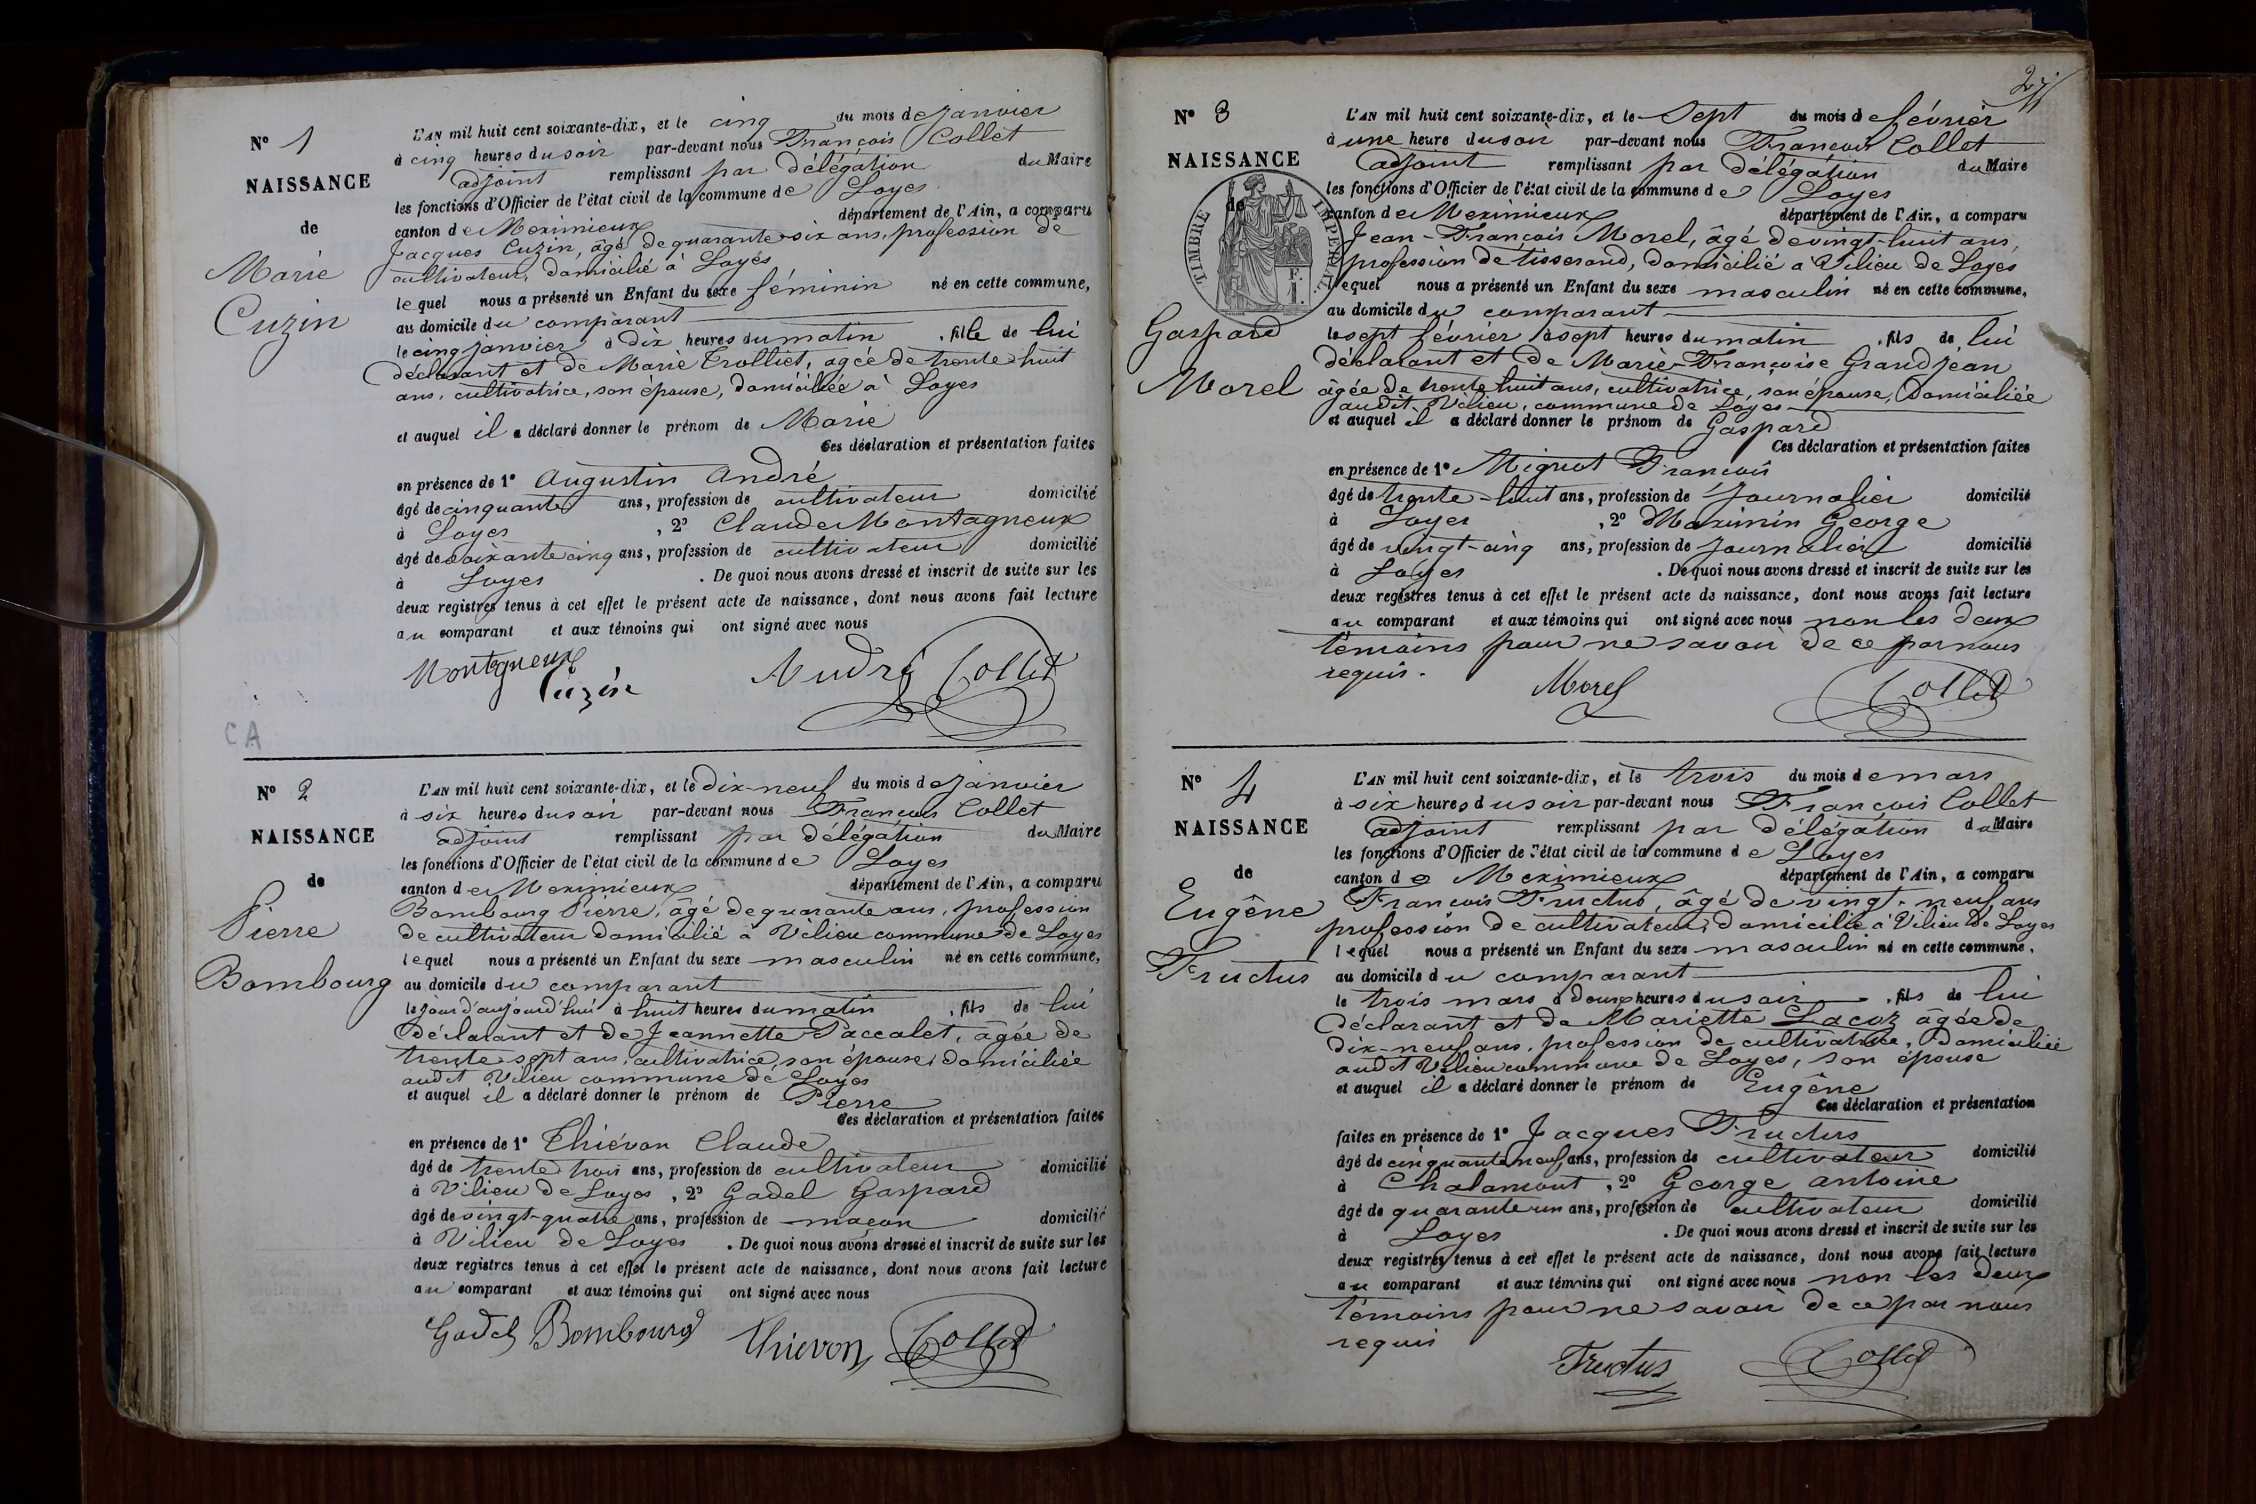 Nº 1
NAISSANCE
de
Marie
Cuzin
L'AN mil huit cent soixante-dix, et le cinq du mois de janvier
à cinq heures du soir par-devant nous François Collet
adjoint remplissant par délégation du Maire
les fonctions d'Officier de l'état civil de la commune de Loyes
canton de Meximieux département de l'Ain, a comparu
Jacques Cuzin, âgé de quarante-six ans, profession de
cultivateur, domicilié à Loyes
lequel nous a présenté un Enfant du sexe féminin né en cette commune,
au domicile du comparant
le cinq janvier à dix heures du matin, fille de lui
déclarant et de Marie Trolliet, agée de trente-huit
ans, cultivatrice, son épouse, domiciliée à Loyes
et auquel il a déclaré donner le prénom de Marie
Ces déclaration et présentation faites
en présence de 1º Augustin André
âgé de cinquante ans, profession de cultivateur domicilié
à Loyes, 2º Claude Montagneux
âgé de soixante cinq ans, profession de cultivateur domicilié
à Loyes. De quoi nous avons dressé et inscrit de suite sur les
deux registres tenus à cet effet le présent acte de naissance, dont nous avons fait lecture
au comparant et aux témoins qui ont signé avec nous
Montagneux Cuzin André Collet
CA
Nº 2
NAISSANCE
de
Pierre
Bombourg
L'AN mil huit cent soixante-dix, et le dix-neuf du mois de janvier
à six heures du soir par-devant nous François Collet
adjoint remplissant par délégation du Maire
les fonctions d'Officier de l'état civil de la commune de Loyes
canton de Meximieux département de l'Ain, a comparu
Bombourg Pierre, âgé de quarante ans, profession
de cultivateur domicilié à Vilieu commune de Loyes
lequel nous a présenté un Enfant du sexe masculin né en cette commune,
au domicile du comparant
le jour d'aujourd'hui à huit heures du matin, fils de lui
déclarant et de Jeannette Paccalet, âgée de
trente sept ans, cultivatrice, son épouse, domiciliée
audit Vilieu commune de Loyes
et auquel il a déclaré donner le prénom de Pierre
Ces déclaration et présentation faites
en présence de 1º Thiévon Claude
âgé de trente trois ans, profession de cultivateur domicilié
à Vilieu de Loyes, 2º Gadel Gaspard
âgé de vingt-quatre ans, profession de maçon domicilié
à Vilieu de Loyes. De quoi nous avons dressé et inscrit de suite sur les
deux registres tenus à cet effet le présent acte de naissance, dont nous avons fait lecture
au comparant et aux témoins qui ont signé avec nous
Gadel Bombourg Thievon Collet
Nº 3
NAISSANCE
de
TIMBRE IMPERIAL
Gaspard
Morel
L'AN mil huit cent soixante-dix, et le Sept du mois de février
à une heure du soir par-devant nous François Collet
adjoint remplissant par délégation du Maire
les fonctions d'Officier de l'état civil de la commune de Loyes
canton de Meximieux département de l'Ain, a comparu
Jean-François Morel, âgé de vingt-huit ans,
profession de tisserand, domicilié à Vilieu de Loyes
lequel nous a présenté un Enfant du sexe masculin né en cette commune,
au domicile du comparant
le sept février à sept heures du matin, fils de lui
déclarant et de Marie-Françoise Grandjean
âgée de trente huit ans, cultivatrice, son épouse, domiciliée
audit Vilieu, commune de Loyes
et auquel il a déclaré donner le prénom de Gaspard
Ces déclaration et présentation faites
en présence de 1º Mignot François
âgé de trente-huit ans, profession de Journalier domicilié
à Loyes, 2º Maximin George
âgé de vingt-cinq ans, profession de Journalier domicilié
à Loyes. De quoi nous avons dressé et inscrit de suite sur les
deux registres tenus à cet effet le présent acte de naissance, dont nous avons fait lecture
au comparant et aux témoins qui ont signé avec nous non les deux
témoins pour ne savoir de ce par nous
requis.
Morel Collet
Nº 4
NAISSANCE
de
Eugêne
Fructus
L'AN mil huit cent soixante-dix, et le trois du mois de mars
à six heures du soir par-devant nous François Collet
adjoint remplissant par délégation du Maire
les fonctions d'Officier de l'état civil de la commune de Loyes
canton de Meximieux département de l'Ain, a comparu
François Fructus, âgé de vingt-neuf ans
profession de cultivateur, domicilié à Vilieu de Loyes
lequel nous a présenté un Enfant du sexe masculin né en cette commune,
au domicile du comparant
le trois mars à deux heures du soir, fils de lui
déclarant et de Mariette Lacoz âgée de
dix-neuf ans, profession de cultivatrice, domiciliée
audit Vilieu commune de Loyes, son épouse
et auquel il a déclaré donner le prénom de Eugêne
Ces déclaration et présentation
faites en présence de 1º Jacques Fructus
âgé de cinquante neuf ans, profession de cultivateur domicilié
à Chalamont, 2º George antoine
âgé de quarante un ans, profession de cultivateur domicilié
à Loyes. De quoi nous avons dressé et inscrit de suite sur les
deux registres tenus à cet effet le présent acte de naissance, dont nous avons fait lecture
au comparant et aux témoins qui ont signé avec nous non les deux
témoins pour ne savoir de ce par nous
requis
Fructus Collet